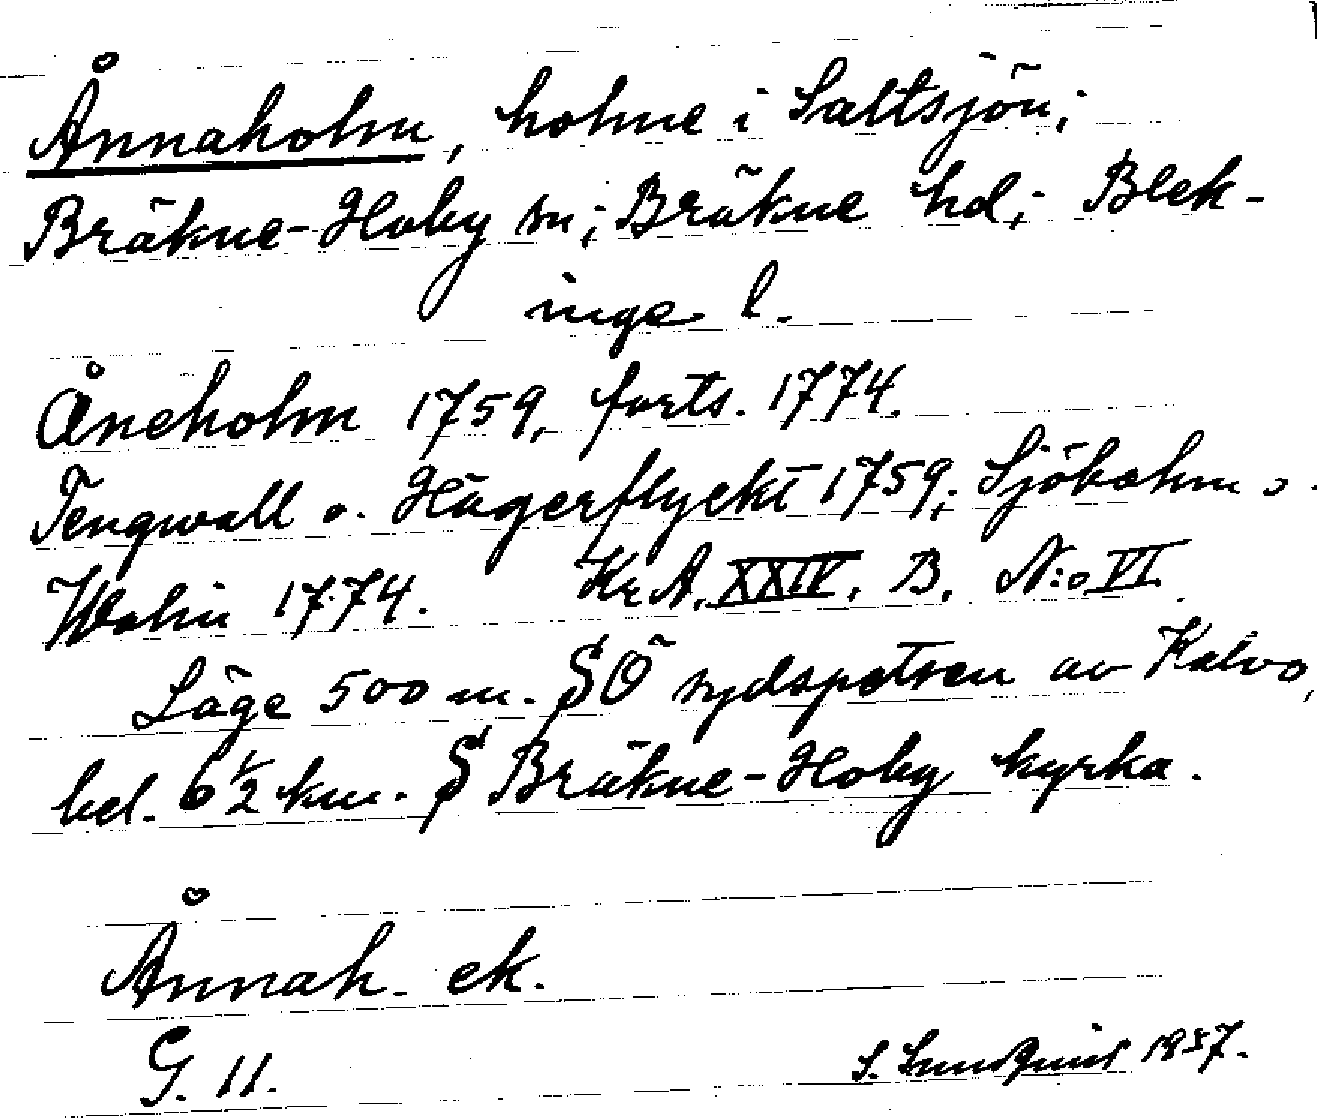 Ånnaholm, holme i Saltsjön;
Bräkne-Hoby sn; Bräkne hd; Blek-
inge l.
Åneholm 1759, forts. 1774.
Tengwall o. Hägerflyckt 1759; Sjöbohm o.
Wahlin 1774. Kr.A. XXIV. B. N:o VI.
Läge 500 m. SÖ sydspetsen av Kalvö,
bel. 6 1/2 km. S Bräkne-Hoby kyrka.
Ånnah. ek.
G. 11.
S. Lundquist 1937.